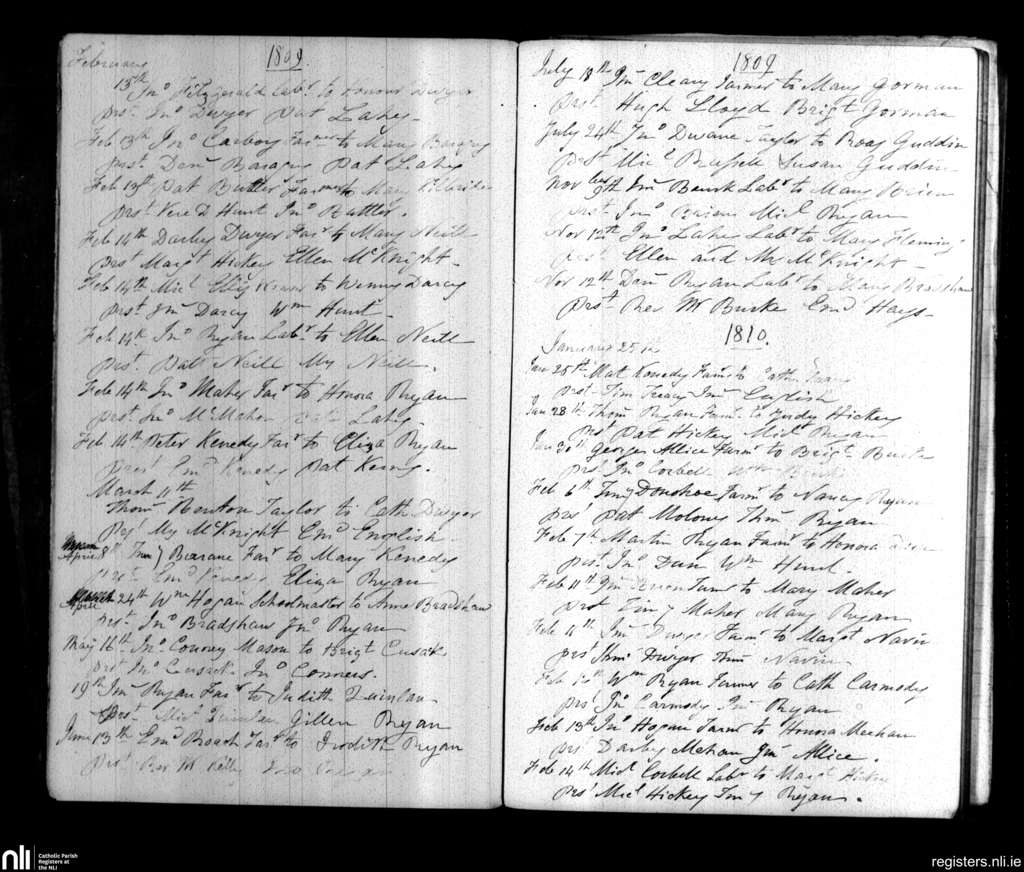 1809
February
13th Jno Fitzgerald Labr to Honour Dwyer
prst Jno Dwyer Pat Lahy
Feb 13th Jno Carboy Farmer to Mary
prst Danl Pat Lahy
Feb 13th Pat Butler Farmer to Mary Kilbride
prst Vere D Hunt Jno Buttler.
Feb 14th Darby Dwyer Far to Mary Neill
prst Margt Hickey Ellen McKnight
Feb 14th Michl to Winny Darcy
prst Jms Darcy Wm Hunt
Feb 14th Jno Ryan Labr to Ellen Neill
prst Patt Neill My Neill.
Feb 14th Jno Maher Far to Honora Ryan
prst Jno McMaher Lahy
Feb 14th Peter Kenedy Far to Eliza Ryan
prst Emd Kenedy Pat
March 11th
Thoms Renton Taylor to Cath Dwyer
prst My McKnight Emd English
April 8th Far to Mary Kenedy
prst Emd Kenedy Eliza Ryan
April 24th Wm Hogan Schoolmaster to Anne Bradshaw
prst Jno Bradshaw Jno Ryan
May 16th Jno Conney Mason to Brigt Cusak
prst Jno Cusack Jno Conners.
19th Jms Ryan Far to Judith Quinlan
prst Michl Quinlan Gillen Ryan
June 13th Emd Roach Far to Judith Ryan
prst Rev Mr Kelly
1809
July 18th Jms Cleary Farmer to Mary Gorman
prst Hugh Lloyd Brigt Gorman
July 24th Jno Dwane Taylor to Rosy Guddin
prst Michl Susan Guddin
Novber 9th Jms Bourk Labr to Mary
prst Jms Michl Ryan
Nov 12th Jno Lahy Labr to Mary Fleming
prst Ellen and My McKnight
Nov 12th Danl Ryan Labr to Mary Bradshaw
prst Rev Mr Burke Emd Hays
1810.
January 25th
Jan 25th Mat Kenedy Farmr to
prst Tim Jms English
Jan 28th Thoms Ryan Farmr to Judy Hickey
prst Pat Hickey Michl Ryan
Jan 30th George Allice Farmr to Brigt Burke
prst Jno Corbell Wm
Feb 6th Timy Donohoe Farmr to Nancy Ryan
prst Pat Molony Thms Ryan
Feb 7th Martin Ryan Farmr to Honora
prst Jno Wm Hunt.
Feb 11th Farmr to Mary Maher
prst Maher Mary Ryan
Feb 11th Jms Dwyer Farmr to Margt Navin
prst Thms Dwyer Thms Navin
Feb Wm Ryan Farmer to Cath Carmody
prst Jno Carmody Jms Ryan
Feb 13th Jno Hogan Farmr to Honora Meehan
prst Darby Mehan Jms Allice.
Feb 14th Michl Corbell Labr to Margt Hickey
prst Michl Hickey Timy Ryan.
nli
Catholic Parish
Registers at
the NLI
registers.nli.ie